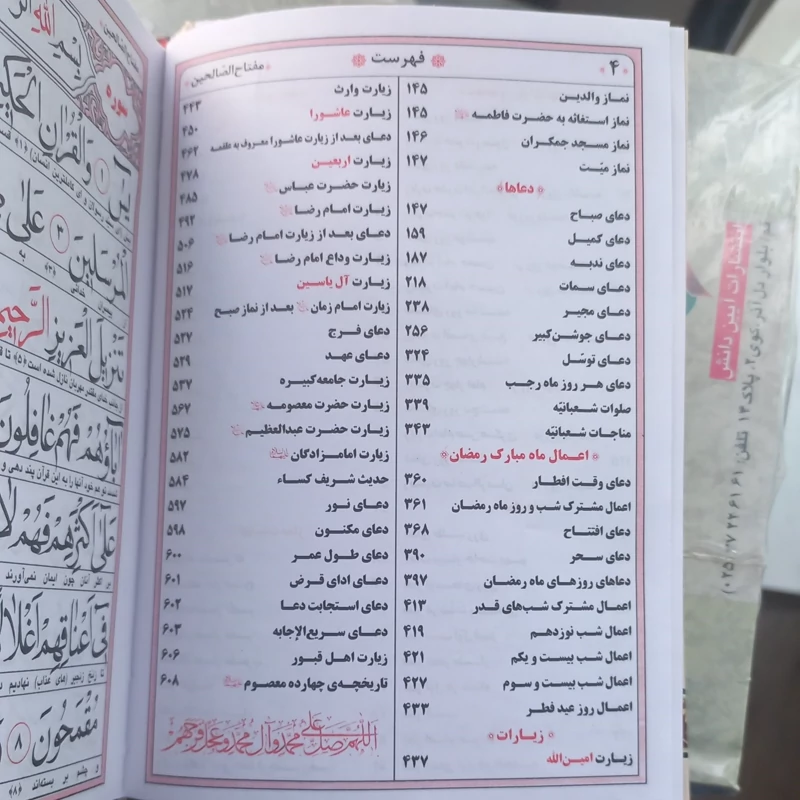 ۴
فهرست
مفتاح الصّالحین
نماز والدین ۱۴۵
نماز استغاثه به حضرت فاطمه ۱۴۵
نماز مسجد جمکران ۱۴۶
نماز میّت ۱۴۷
دعاها
دعای صباح ۱۴۷
دعای کمیل ۱۵۹
دعای ندبه ۱۸۷
دعای سمات ۲۱۸
دعای مجیر ۲۳۸
دعای جوشن‌کبیر ۲۵۶
دعای توسّل ۳۲۴
دعای هر روز ماه رجب ۳۳۵
صلوات شعبانیّه ۳۳۹
مناجات شعبانیّه ۳۴۳
اعمال ماه مبارک رمضان
دعای وقت افطار ۳۶۰
اعمال مشترک شب و روز ماه رمضان ۳۶۱
دعای افتتاح ۳۶۸
دعای سحر ۳۹۰
دعاهای روزهای ماه رمضان ۳۹۷
اعمال مشترک شب‌های قدر ۴۱۳
اعمال شب نوزدهم ۴۱۹
اعمال شب بیست و یکم ۴۲۱
اعمال شب بیست و سوم ۴۲۷
اعمال روز عید فطر ۴۳۳
زیارات
زیارت امین‌الله ۴۳۷
زیارت وارث ۴۴۳
زیارت عاشورا ۴۵۰
دعای بعد از زیارت عاشورا معروف به علقمه ۴۶۲
زیارت اربعین ۴۷۸
زیارت حضرت عباس ۴۸۵
زیارت امام رضا ۴۹۲
دعای بعد از زیارت امام رضا ۵۰۶
زیارت وداع امام رضا ۵۱۶
زیارت آل یاسین ۵۱۷
زیارت امام زمان بعد از نماز صبح ۵۲۴
دعای فرج ۵۲۷
دعای عهد ۵۲۹
زیارت جامعه‌کبیره ۵۳۷
زیارت حضرت معصومه ۵۶۷
زیارت حضرت عبدالعظیم ۵۷۵
زیارت امامزادگان ۵۸۲
حدیث شریف کساء ۵۸۴
دعای نور ۵۹۷
دعای مکنون ۵۹۸
دعای طول عمر ۶۰۰
دعای ادای قرض ۶۰۱
دعای استجابت دعا ۶۰۲
دعای سریع‌الإجابه ۶۰۳
زیارت اهل قبور ۶۰۶
تاریخچه‌ی چهارده معصوم ۶۰۸
اللهم صل علی محمد وآل محمد وعجل فرجهم
بِسْمِ اللهِ
سوره
یس ۱ وَالْقُرْآنِ الْحَكِيمِ
الْمُرْسَلِينَ ۳ عَلَىٰ
تَنْزِيلَ الْعَزِيزِ الرَّحِيمِ
آبَاؤُهُمْ فَهُمْ غَافِلُونَ
عَلَىٰ أَكْثَرِهِمْ فَهُمْ لَا
فِي أَعْنَاقِهِمْ أَغْلَالًا
مُقْمَحُونَ ۸
انتشارات آیین دانش